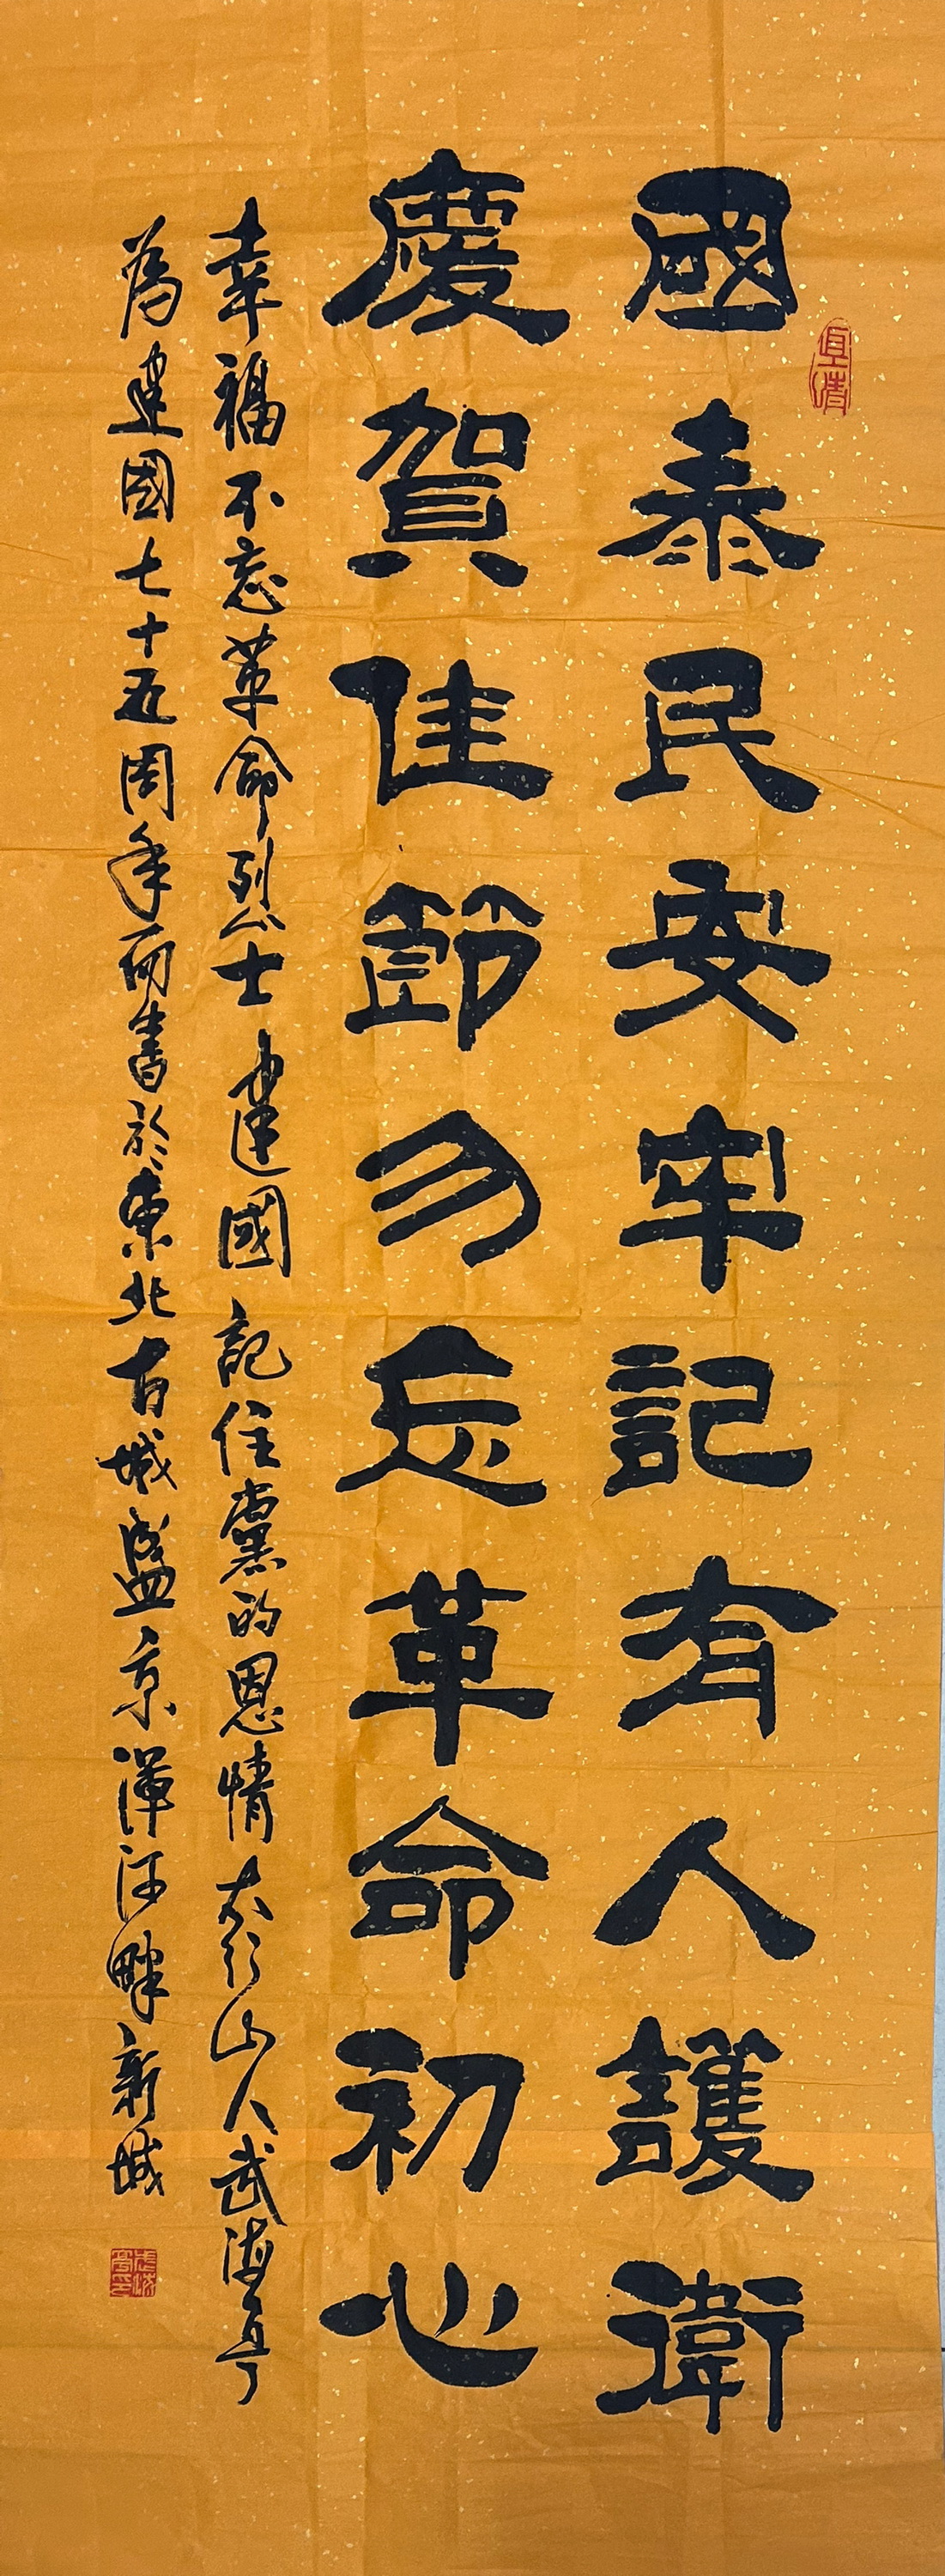 國泰民安牢記有人護衛
慶賀佳節勿忘革命初心
幸福不忘革命烈士建國記住黨的恩情太行山人武海亭
為建國七十五周年而書於東北古城盛京渾河畔新城